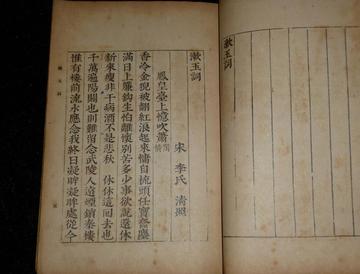 漱玉詞
漱玉詞
宋 李氏 清照
鳳皇臺上憶吹簫
香冷金猊被翻紅浪起來慵自梳頭任寶奩塵
滿日上簾鉤生怕離懷別苦多少事欲說還休
新來瘦非干病酒不是悲秋 休休這回去也
千萬遍陽關也則難留念武陵人遠煙鎖秦樓
惟有樓前流水應念我終日凝眸凝眸處從今